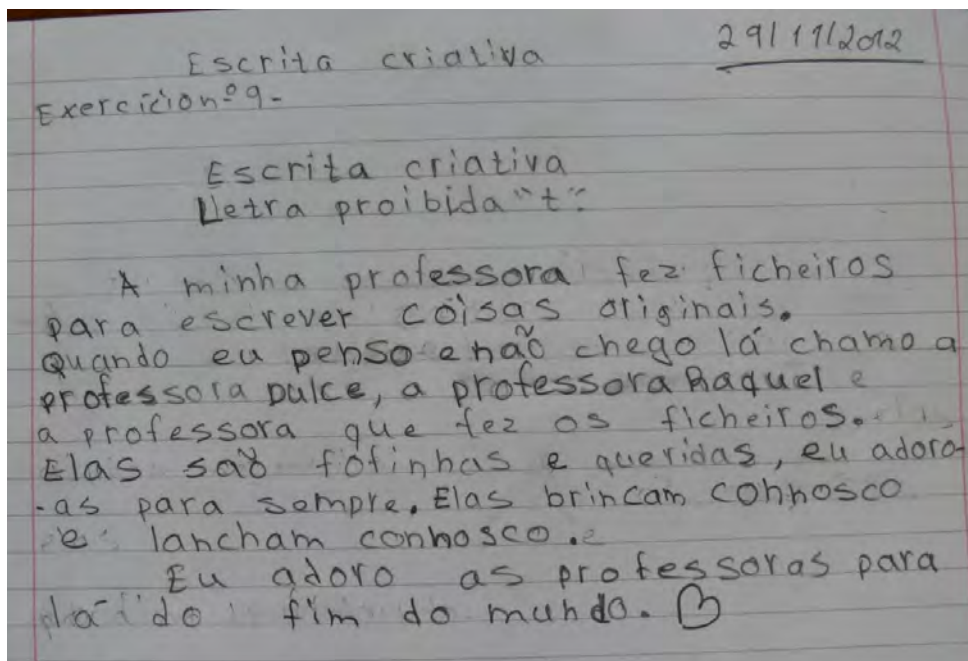 29/11/2012
Escrita criativa
Exercício nº 9-
Escrita criativa
Letra proibida "t".
A minha professora fez ficheiros
para escrever coisas originais.
Quando eu penso e não chego lá chamo a
professora Dulce, a professora Raquel e
a professora que fez os ficheiros.
Elas são fofinhas e queridas, eu adoro-
-as para sempre. Elas brincam connosco
e lancham connosco.
Eu adoro as professoras para
lá do fim do mundo.